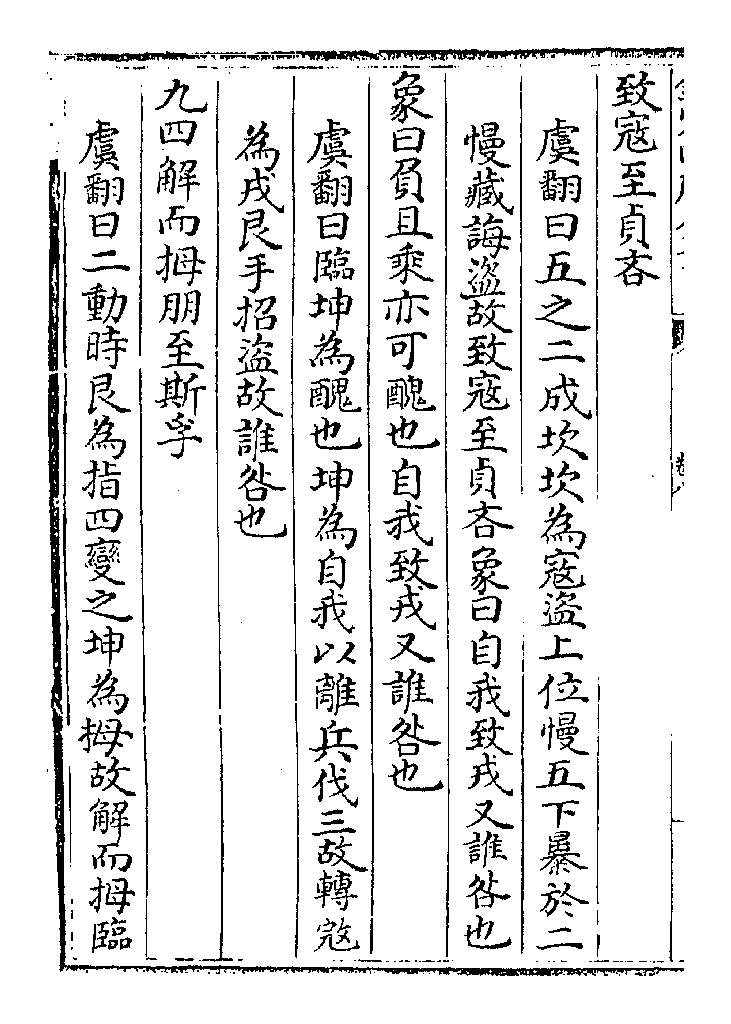 致寇至貞吝
虞翻曰五之二成坎坎為寇盜上位慢五下暴於二
慢藏誨盜故致寇至貞吝象曰自我致戎又誰咎也
象曰負且乘亦可醜也自我致戎又誰咎也
虞翻曰臨坤為醜也坤為自我以離兵伐三故轉寇
為戎艮手招盜故誰咎也
九四解而拇朋至斯孚
虞翻曰二動時艮為指四變之坤為拇故解而拇臨